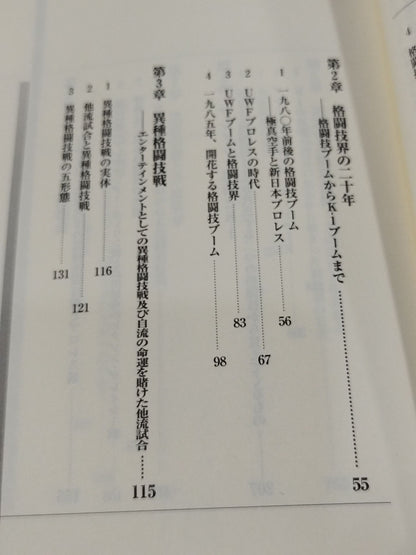 第2章 格闘技界の二十年
――格闘技ブームからK-1ブームまで……55
1 一九八〇年前後の格闘技ブーム
――極真空手と新日本プロレス……56
2 UWFプロレスの時代……67
3 UWFブームと格闘技界……83
4 一九八五年、開花する格闘技ブーム……98
第3章 異種格闘技戦
――エンターテインメントとしての異種格闘技戦及び自流の命運を賭けた他流試合……115
1 異種格闘技戦の実体……116
2 他流試合と異種格闘技戦……121
3 異種格闘技戦の五形態……131